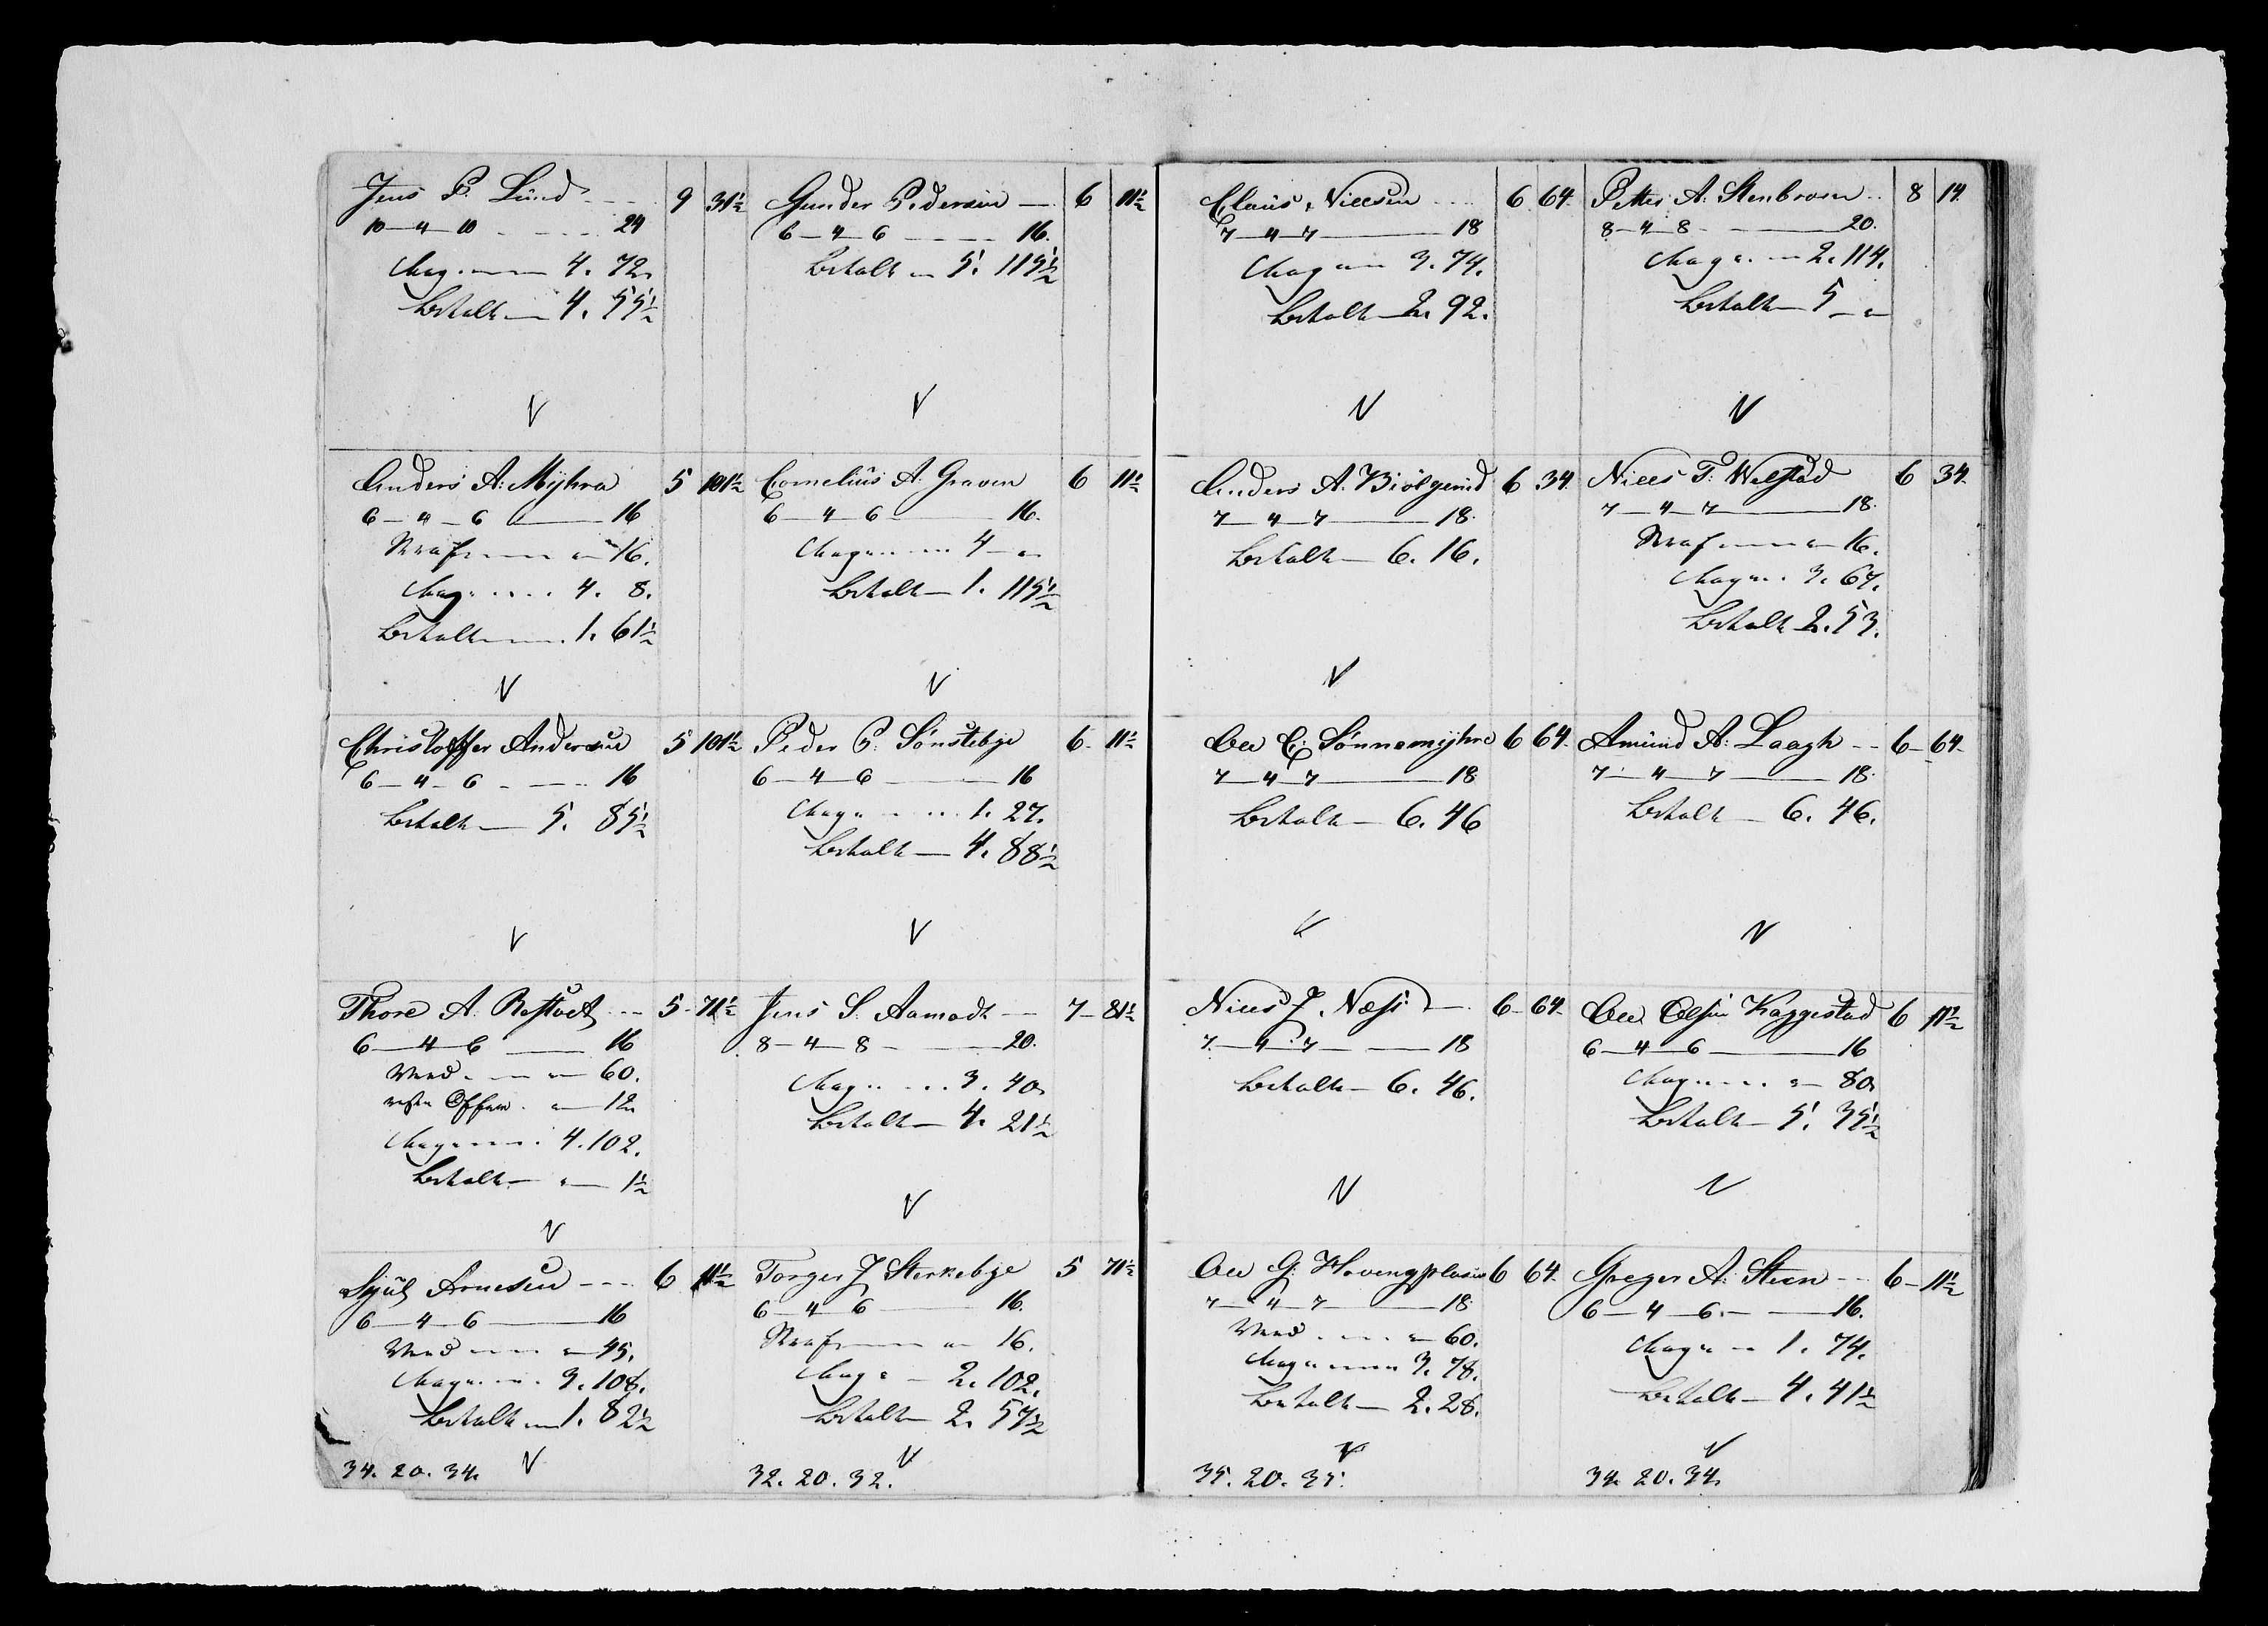 Jens P. Lund - - - 9 31½
10 - 4 - 10 - - - - 24
Mag. - - - 4. 72.
betalt - 4. 55½
V
Anders A: Myhra 5 101½
6 - 4 - 6 - 16
Straf - - - 16.
Mag. - - - 4. 8.
betalt - - - 1. 61½
V
Christoffer Andersen 5 101½
6 - 4 - 6 - - - 16
betalt - 5. 85½
V
Thore A. - - - 5 - 71½
6 - 4 - 6 - 16
Ved - - - 60.
Offer. - 12.
Mag. - - - 4. 102.
betalt - - 1½
V
Arnesen - - - 6 11½
6 - 4 - 6 - 16
Ved - - - 45.
Mag. - - - 3. 108.
betalt - 1. 82½
34. 20. 34. V
Gunder Pedersen - 6 11½
6 - 4 - 6 - - - 16.
betalt - 5. 115½
V
Cornelius A. Graven 6 11½
6 - 4 - 6 - 16.
Mag. - - - 4 - -
betalt - 1. 115½
V
Peder P: Sönstebye 6 - 11½
6 - 4 - 6 - 16
Mag. - - - 1. 27.
betalt - 4. 88½
V
Jens S. Aamodt - - 7 - 81½
8 - 4 - 8 - 20.
Mag. - - - 3. 40.
betalt - 4. 21½
V
Torger J Sterkebye 5 71½
6 - 4 - 6 - 16.
Straf - - - 16.
Mag. - 2. 102.
betalt - 2. 57½
V
32. 20. 32.
Claus Nielsen - - - 6 64.
7 - 4 - 7 - 18
Mag. - - 3. 74.
betalt - 2. 92.
V
Anders A. 6 34.
7 - 4 - 7 - 18.
betalt - 6. 16.
V
Ole C: Sönnemyhre 6 64.
7 - 4 - 7 - 18.
betalt - 6. 46
V
Niels J. Næss - 6 - 64.
7 - 4 - 7 - - 18
betalt - 6. 46.
V
Ole G: 6 64.
7 - 4 - 7 - 18.
Ved - - - 60.
Mag. - - - 3. 78.
betalt - 2. 28.
V
35. 20. 35.
Petter A. Stenbraaten - - 8 14.
8 - 4 - 8 - - 20.
Mag. - - 2. 114.
betalt - 5 - -
V
Niels T: 6 34.
7 - 4 - 7 - 18.
Straf - - - 16.
Mag. - - 3. 67.
betalt 2. 53.
Amund A. Laagh - - 6 - 64.
7 - 4 - 7 - 18.
betalt - 6. 46.
V
Ole Olsen Kaggestad 6 11½
6 - 4 - 6 - 16
Mag. - - - - 80.
betalt - 5. 35½
V
Greger A. Steen - - 6 - 11½
6 - 4 - 6. - - 16.
Mag. - - 1. 74.
betalt - 4. 41½
V
34. 20. 34.